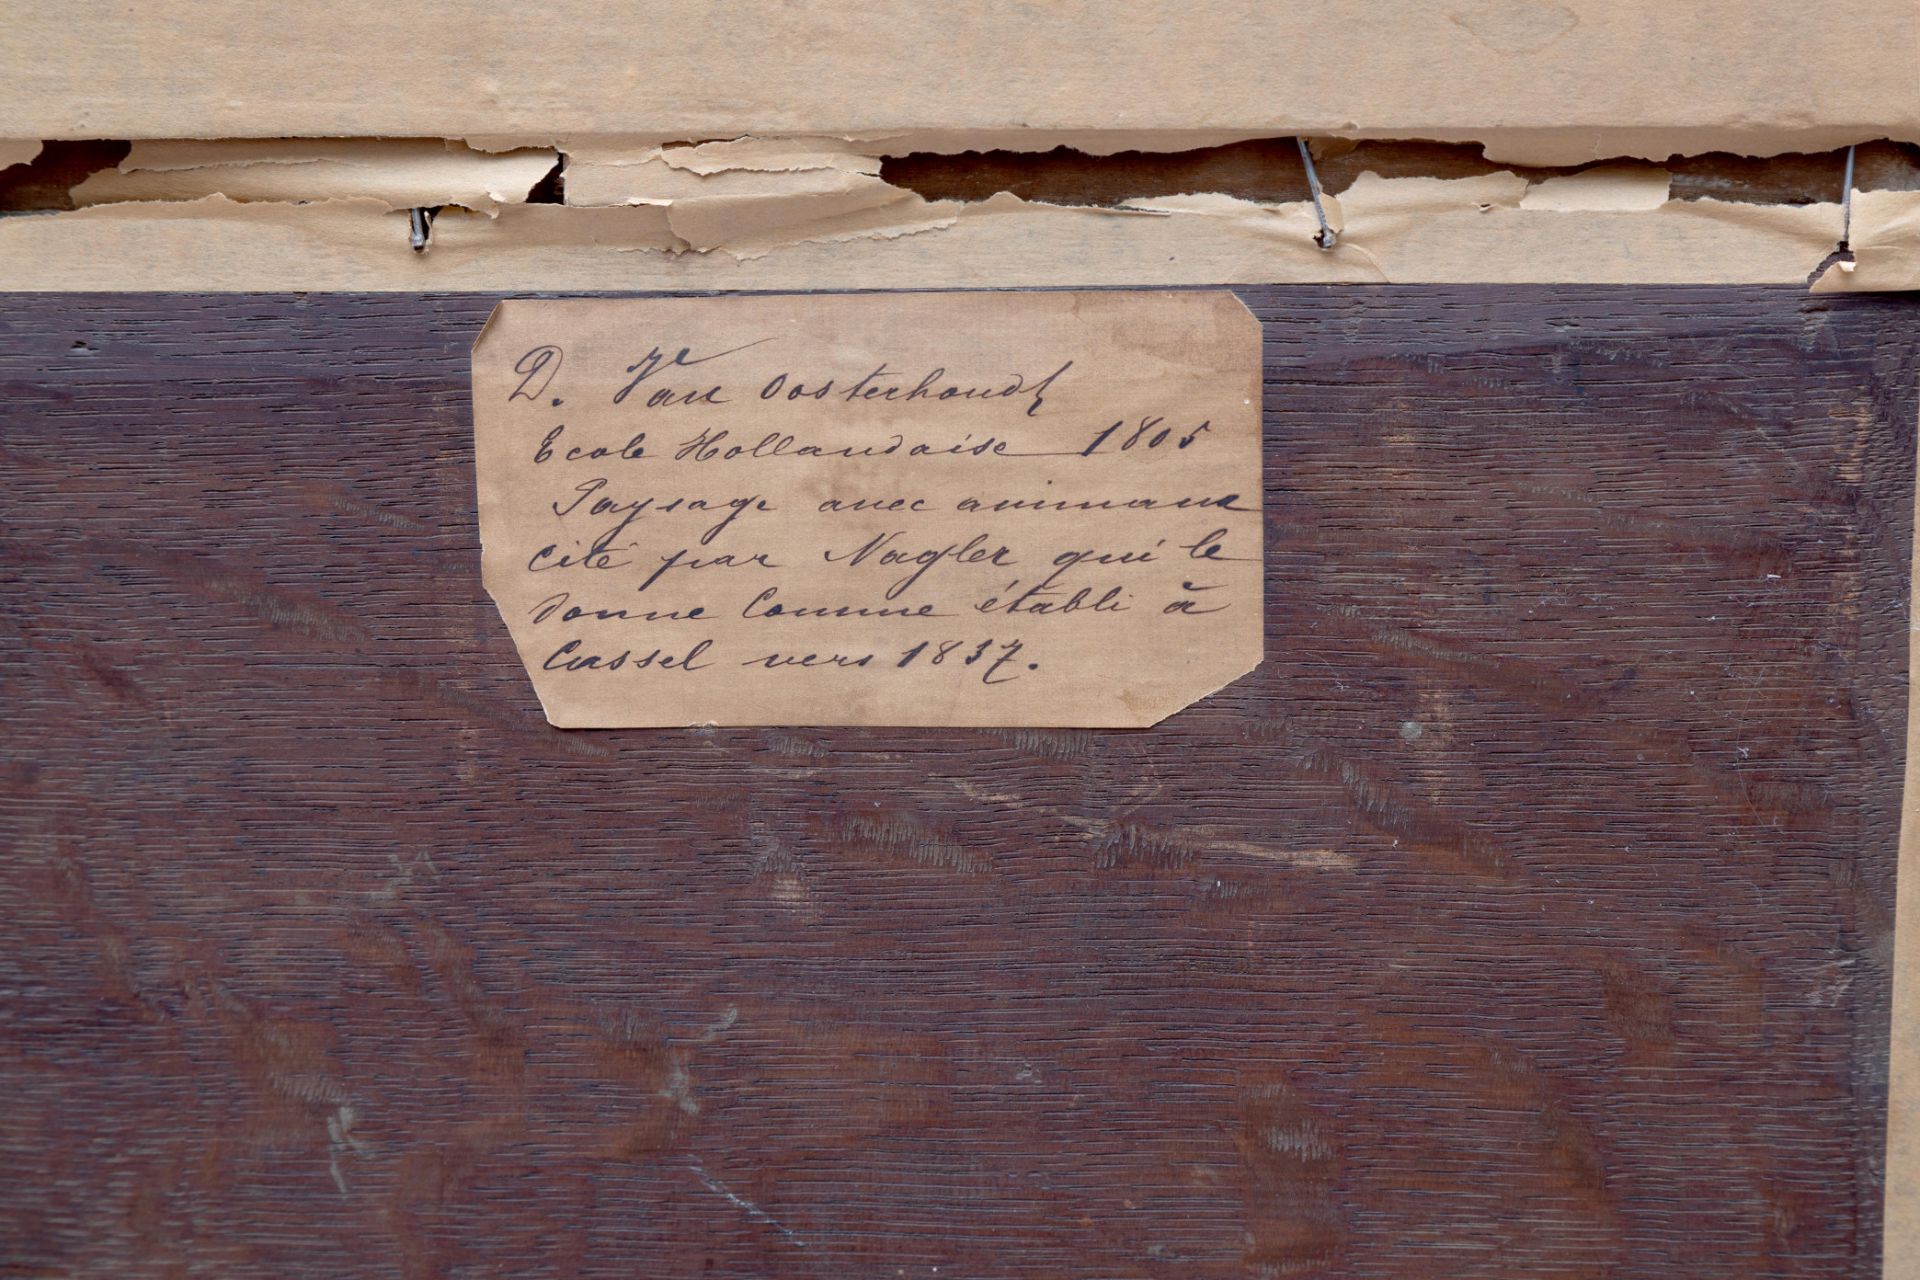 D. Van Oosterhoudt
Ecole Hollandaise 1805
Paysage avec animaux
cité par Nagler qui le
donne comme établi à
Cassel vers 1837.